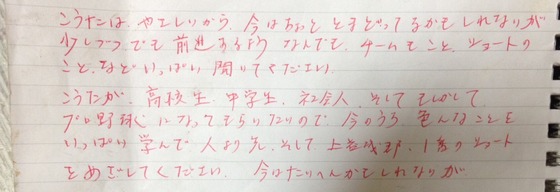 こうたは、やさしいから、今はちょっと とまどってるかもしれないが
少しづつでも前進する様 なんでも、チームのこと、ショートの
こと、などいっぱい聞いてください。
こうたが、高校生、中学生、社会人、そしてもしかして
プロ野球になってもらいたいので 今のうち 色んなことを
いっぱい学んで 人より先、そして、上 1番のショート
をめざしてください。 今はたいへんかもしれないが